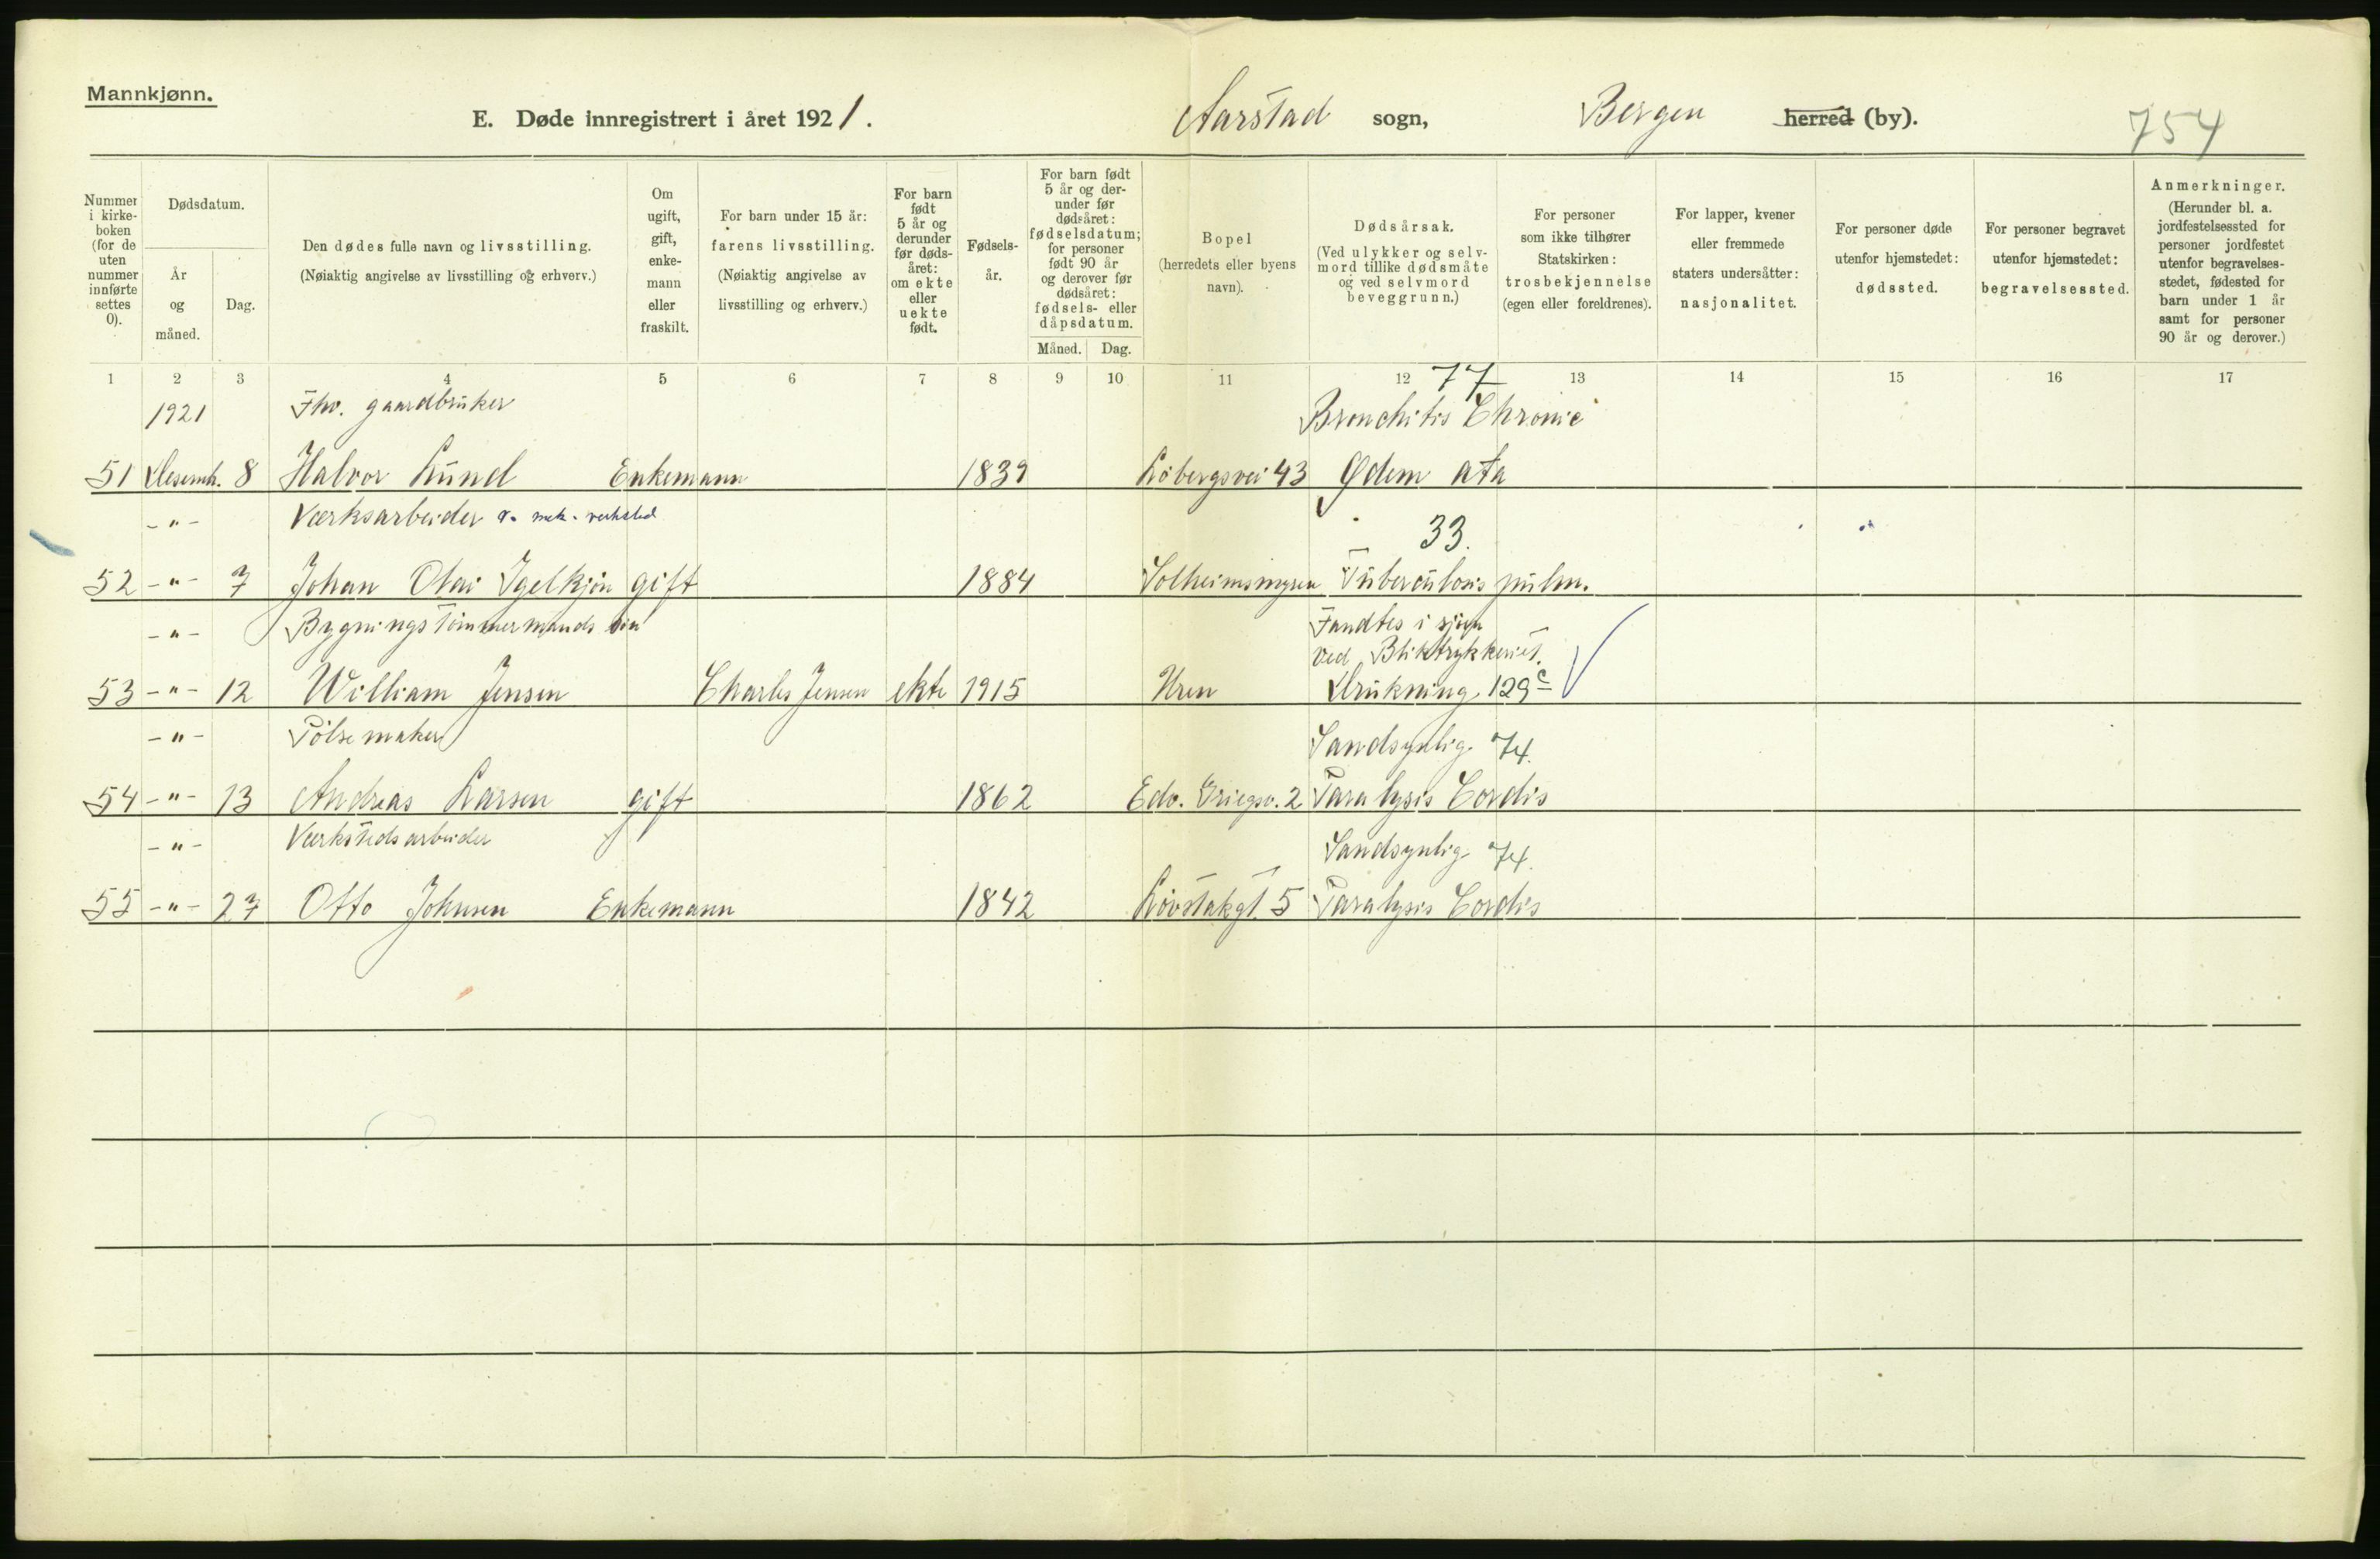 Mannkjønn.
E. Døde innregistrert i året 1921.
Aarstad sogn,
Bergen herred (by).
754
Nummer i kirke-boken (for de uten nummer innførte settes 0).
Dødsdatum.
År og måned.
Dag.
Den dødes fulle navn og livsstilling.
(Nøiaktig angivelse av livsstilling og erhverv.)
Om ugift, gift, enke-mann eller fraskilt.
For barn under 15 år: farens livsstilling.
(Nøiaktig angivelse av livsstilling og erhverv.)
For barn født 5 år og derunder før døds-året: om ekte eller uekte født.
Fødsels-år.
For barn født 5 år og der-under før dødsåret: fødselsdatum; for personer født 90 år og derover før dødsåret: fødsels- eller dåpsdatum.
Måned.
Dag.
Bopel (herredets eller byens navn).
Dødsårsak.
(Ved ulykker og selv-mord tillike dødsmåte og ved selvmord beveggrunn.)
For personer som ikke tilhører Statskirken: trosbekjennelse (egen eller foreldrenes).
For lapper, kvener eller fremmede staters undersåtter: nasjonalitet.
For personer døde utenfor hjemstedet: dødssted.
For personer begravet utenfor hjemstedet: begravelsessted.
Anmerkninger.
(Herunder bl. a. jordfestelsessted for personer jordfestet utenfor begravelses-stedet, fødested for barn under 1 år samt for personer 90 år og derover.)
1 2 3 4 5 6 7 8 9 10 11 12 13 14 15 16 17
77
1921 Fhv. gaardbruker Bronchitis Chronic
51 Desemb. 8 Halvor Lund Enkemann 1839 Löbergsvei 43 Ødem ata
-"- Værksarbeider v. mek. verksted 33.
52 -"- 7 Johan Olai Igelkjön gift 1884 Solheimsmyren Tuberculosis pulm.
-"- Bygningstömmermands sön Fandtes i sjöen
ved Bliktrykkeriet.
53 -"- 12 William Jensen Charles Jensen ekte 1915 Uren Drukning 129c
-"- Pölsemaker Sandsynlig 74.
54 -"- 13 Andreas Larsen gift 1862 Edv. Griegsv. 2 Paralysis Cordis
-"- Verkstedsarbeider Sandsynlig 74.
55 -"- 27 Otto Johnsen Enkemann 1842 Lövstakgt. 5 Paralysis Cordis